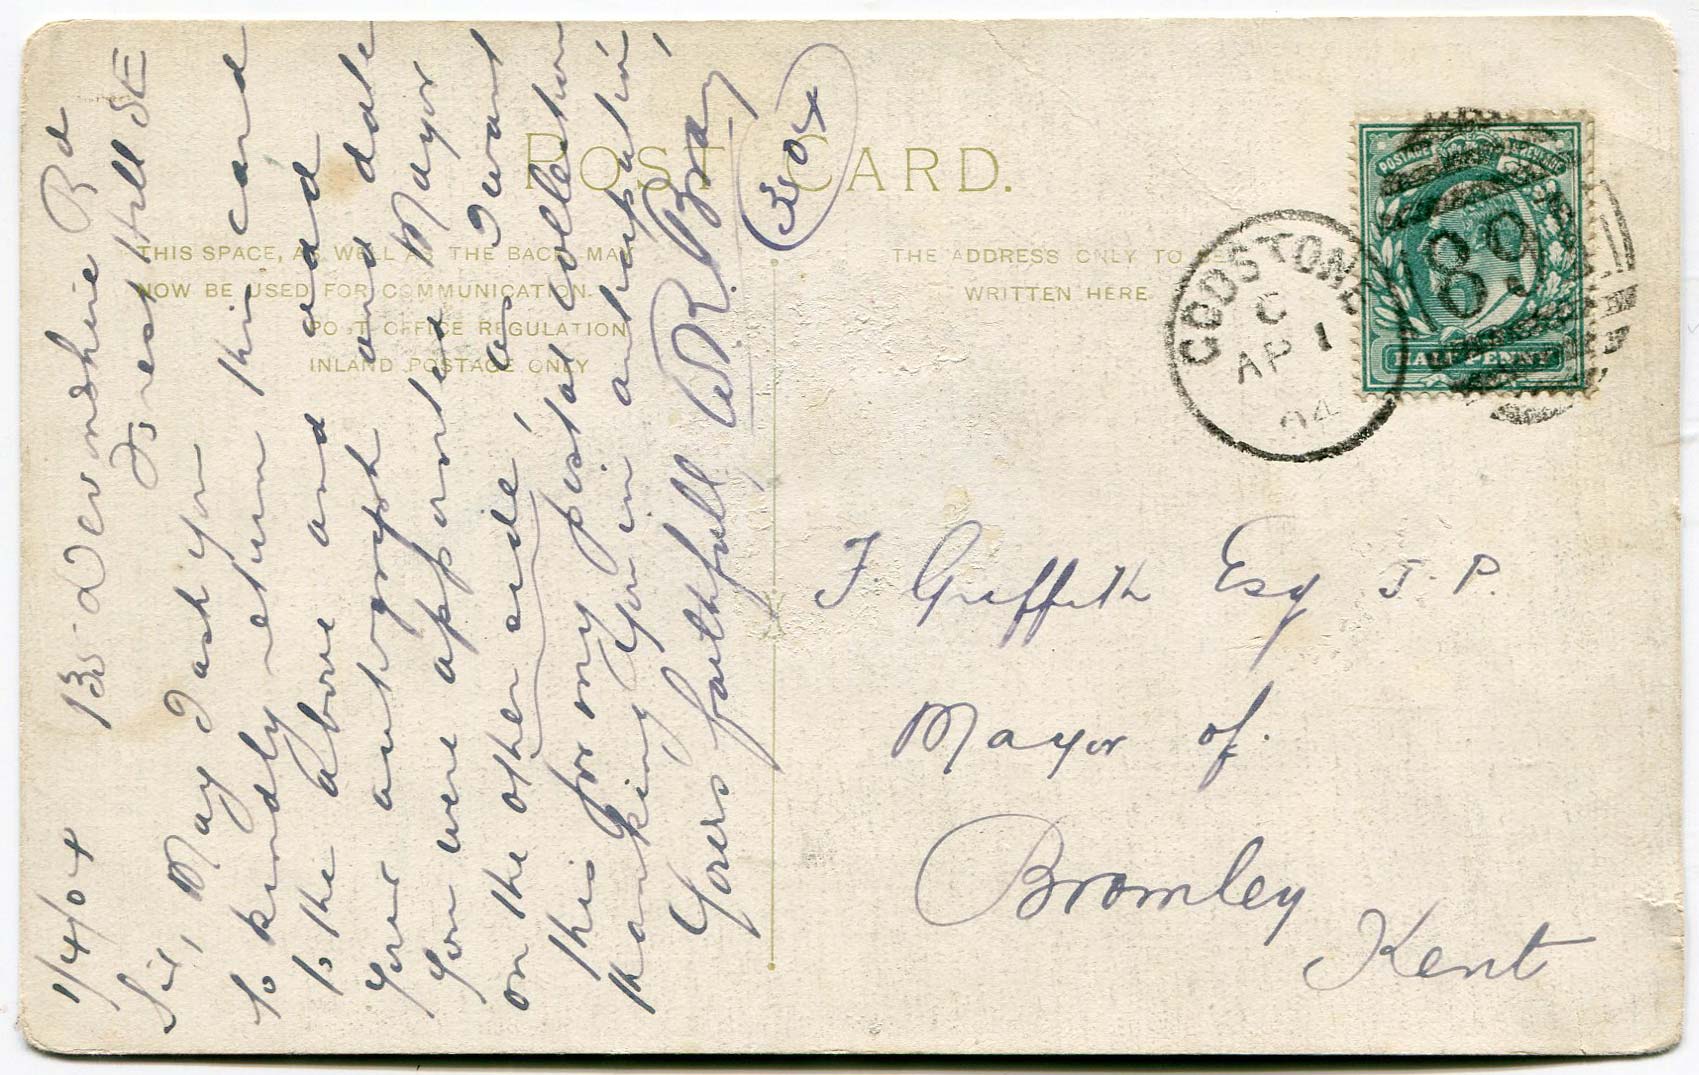 1/4/04 135 Devonshire Rd
Forest Hill SE
Sir, May I ask you
to kindly return this card
to the above and add
your autograph and date
you were appointed Mayor
on the other side, as I want
this for my postal collection
thanking you in anticipation
Yours faithfully W R. Bray
POST CARD.
THIS SPACE, AS WELL AS THE BACK, MAY
NOW BE USED FOR COMMUNICATION.
POST OFFICE REGULATION
INLAND POSTAGE ONLY
THE ADDRESS ONLY TO BE
WRITTEN HERE
GODSTONE
C
AP 1
04
89
POSTAGE
HALFPENNY
F Griffith Esq J. P.
Mayor of.
Bromley
Kent